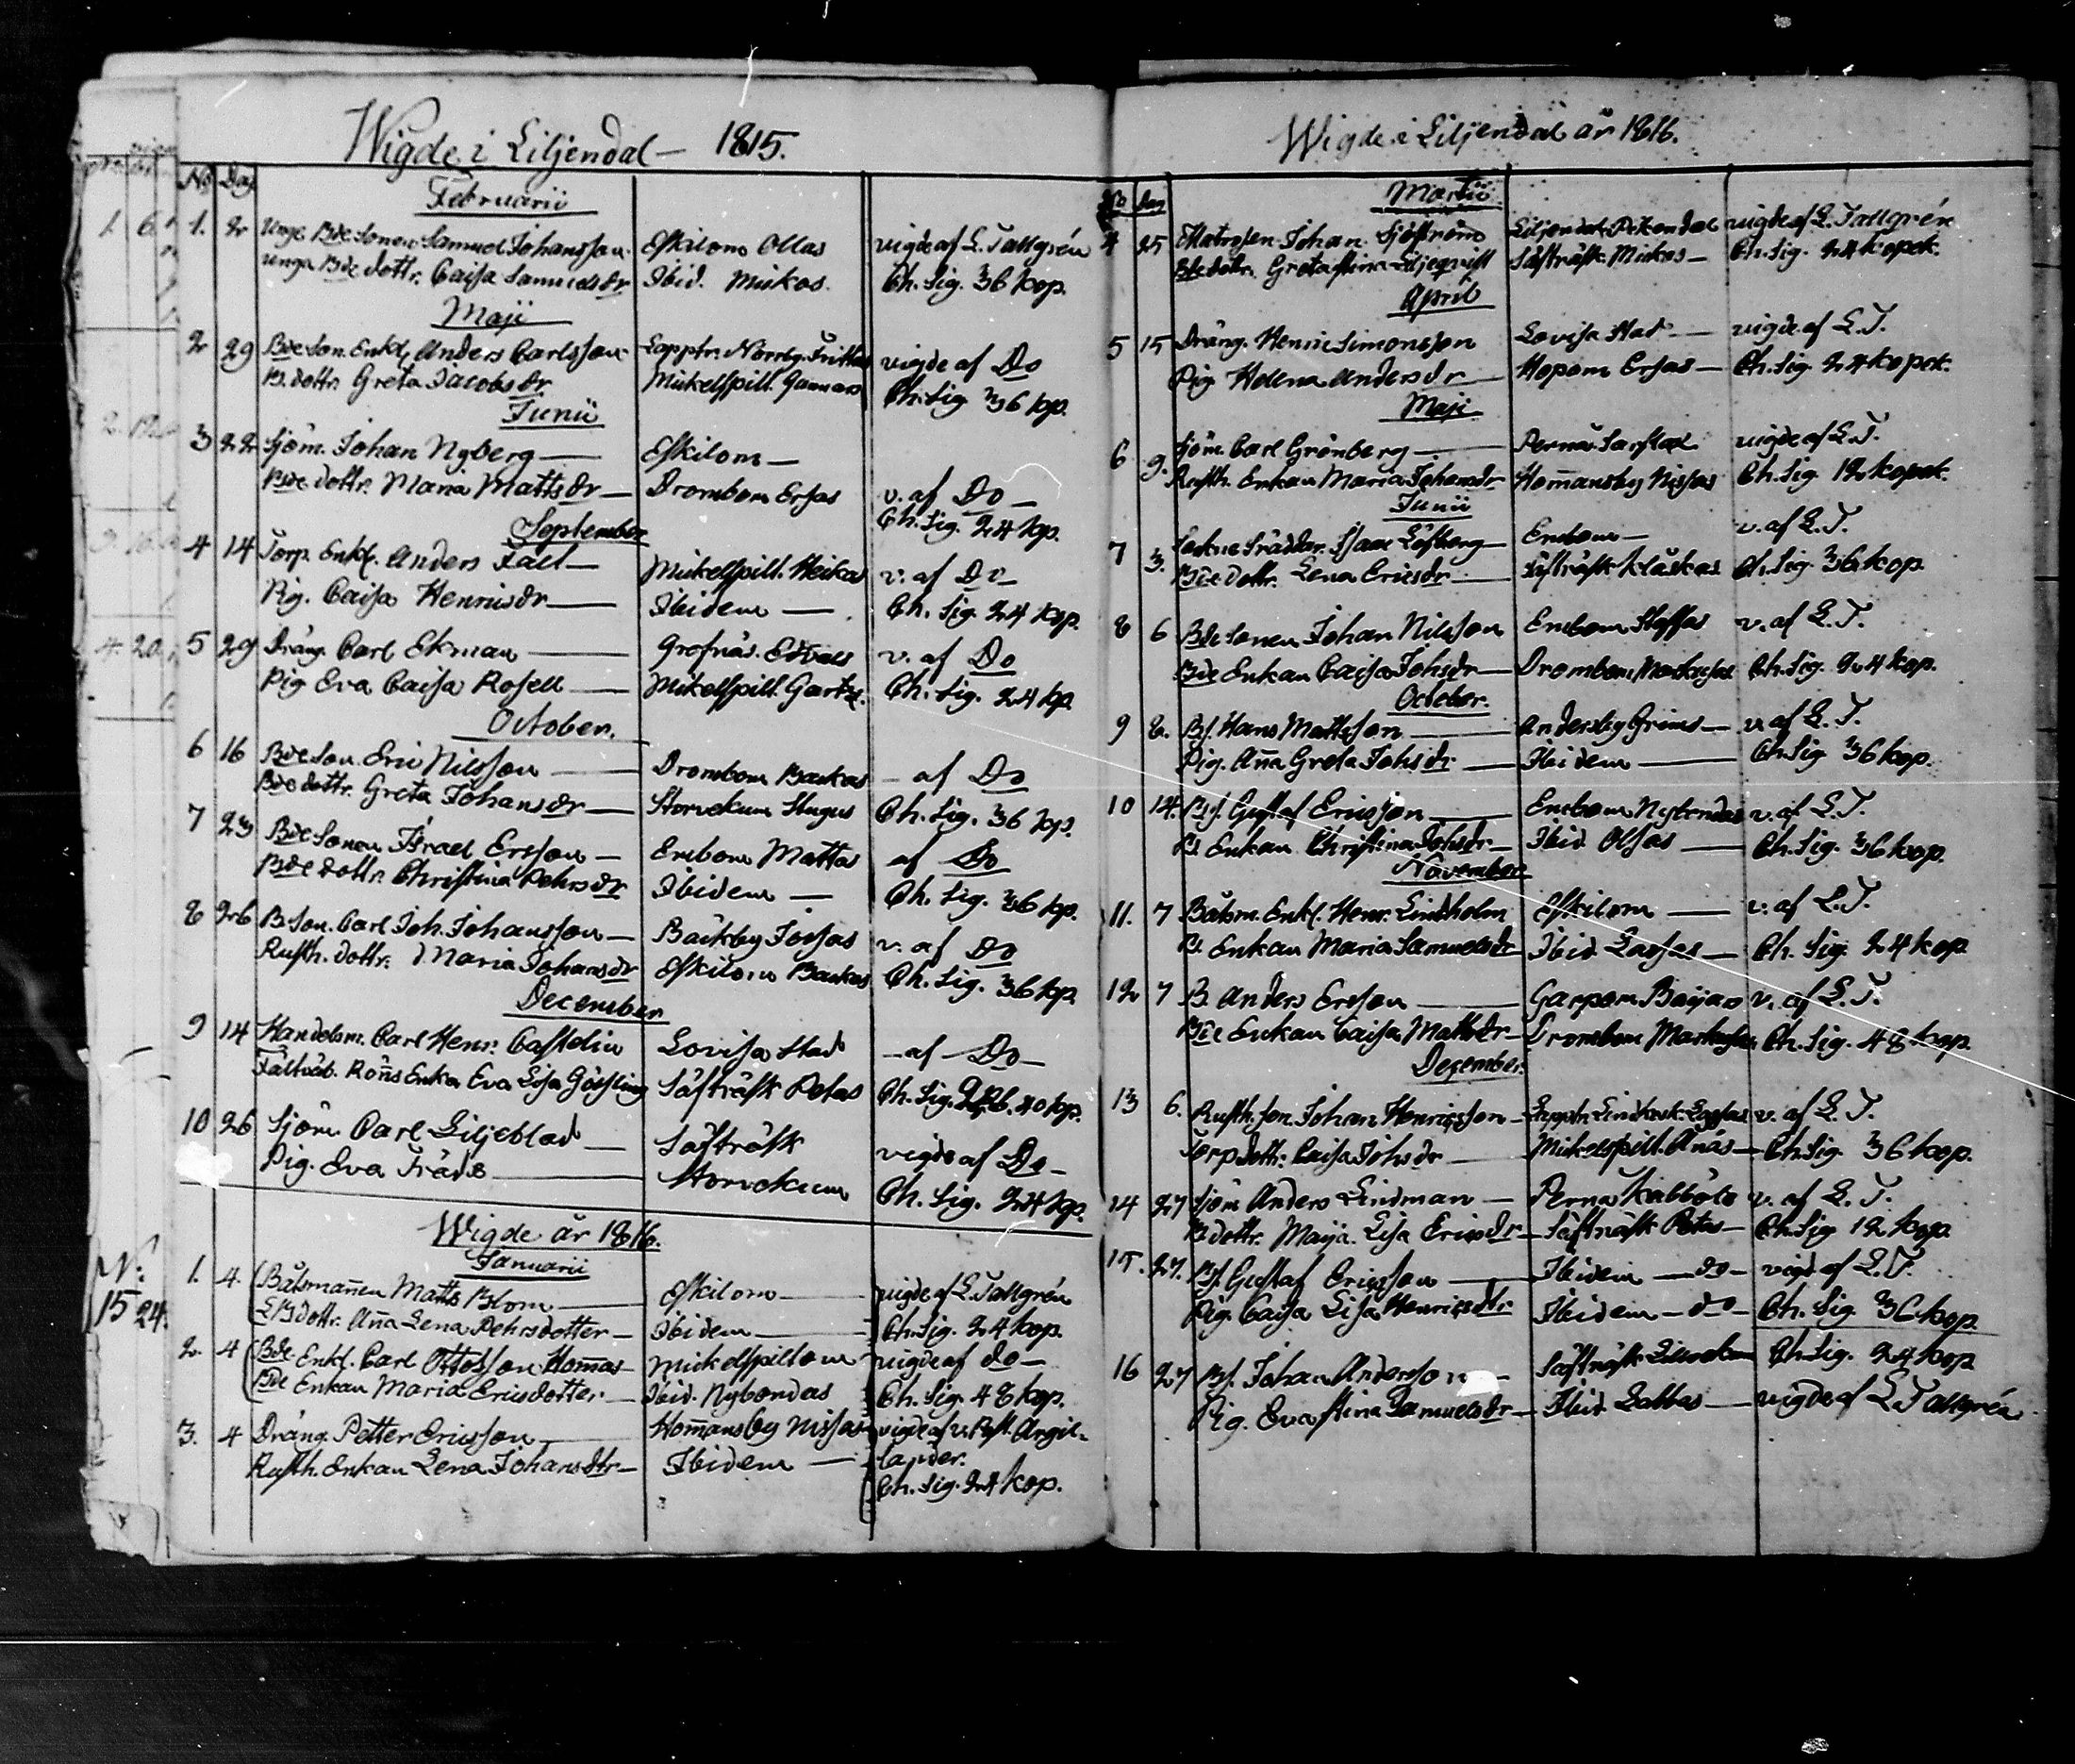 Wigde i Liljendal — 1815.
No Dag
Februarii
1. 2 Unge Bde Sonen Samuel Johansson Eskilom Ollas vigde af L. Tallgrén
unga Bde dottr. Caisa Samuelsdr Ibid. Mickos. Ch. Sig. 36 kop.
Maji
2 29 Bde Son. Enkl. Anders Carlsson Lapptr. Norrby Frittas vigde af Do
B. dottr. Greta Jacobsdr Mickelspill. Gunnars Ch. Sig. 36 kop.
Junii
3 22 Sjöm. Johan Nyberg — Eskilom —
Bde dottr. Maria Mattsdr — Drombom Ersas v. af Do —
Ch. Sig. 24 kop.
September
4 14 Torp. Enkl. Anders Fält — Mickelspill. Heikas v. af Do —
Pig. Caisa Henricsdr — Ibidem — Ch. Sig. 24 kop.
5 29 Dräng. Carl Ekman — Grofnäs. Edvals v. af Do
Pig Eva Caisa Rosell — Mickelspill. Ch. Sig. 24 kp.
October.
6 16 Bde Son. Eric Nilsson — Drombom Backas — af Do
Bde dottr. Greta Johansdr — Storvekum Stugus Ch. Sig. 36 kp.
7 23 Bde Sonen Israel Ersson — Embom Mattas af Do
Bde dottr. Christina Pehrsdr Ibidem — Ch. Sig. 36 kp.
8 26 B. Son. Carl Joh. Johansson — Bäckby Jossas v. af Do
Rusth. dottr. Maria Johansdr Eskilom Backas Ch. Sig. 36 kp.
December
9 14 Handelsm. Carl Henr. Castelin Lovisa Stad — af Do —
Fältväb. Röns Enka Eva Lisa Gösling Säfträsk Petas Ch. Sig. 2 Rb. 40 kp.
10 26 Sjöm. Carl Liljeblad — Säfträsk vigde af Do —
Pig. Eva Träde — Storvekum Ch. Sig. 24 kp.
Wigde år 1816.
Januarii
N:
15 24.
1. 4. Båtsmannen Matts Blom — Eskilom — vigde af L. Tallgrén
Bdottr. Anna Lena Pehrsdotter — Ibidem — Ch. Sig. 24 kop.
2. 4 Bde Enkl. Carl Ottosson Hommas — Mickelspiltom vigde af do —
Bde Enkan Maria Ericsdotter — Ibid. Nybondas Ch. Sig. 48 kop.
3. 4 Dräng Petter Ericsson — Hommansby Nissas vigde af v. Past. Argil-
Rusth. Enkan Lena Johansdtr — Ibidem — lander.
Ch. Sig. 24 kop.
Wigde i Liljendal år 1816.
No Dag
Martii
4 25 Matrosen Johan Sjöström Liljendal Pekendal vigde af L. Tallgrén
Bde dotr. Greta Stina Liljeqvist Säfträsk Mickos — Ch. Sig. 24 kopek.
April
5 15 Dräng. Henric Simonsson Lovisa Stad — vigde af L. T.
Pig. Helena Andersdr — Hopom Ersas — Ch. Sig. 24 kopek.
Maji
6 9. Sjöm. Carl Grönberg — Pernå Sarflax vigde af L. T.
Rusth. Enkan Maria Johansdr Hommansby Nissas Ch. Sig. 12 kopek.
Junii
7 3. Sockne Skräddar. Isaac Löfberg — Embom — v. af L. T.
Bde dottr. Lena Ericsdr — Säfträsk Klåckas Ch. Sig. 36 kop.
8 6 Bde Sonen Johan Nilsson Embom Staffas v. af L. T.
Bde Enkan Caisa Johsdr — Drombom Ch. Sig. 24 kop.
October.
9 8. Bs. Hans Mattsson — Andersby Grims — v. af L. T.
Pig. Anna Greta Johsdr — Ibidem — Ch. Sig 36 kop.
10 14. Bs. Gustaf Ericsson — Embom Nybondas v. af L. T.
B. Enkan Christina Johsdr — Ibid Olsas — Ch. Sig. 36 kop.
November
11. 7 Båtsm. Enkl. Henr. Lindholm Eskilom — v. af L. T.
B. Enkan Maria Samuelsdr Ibid Lassas — Ch. Sig. 24 kop
12 7 B. Anders Ersson — Garpom Baijars v. af L. T.
Bde Enkan Caisa Mattsdr — Drombom Ch. Sig. 48 kop.
December.
13 6. Rusth. Son. Johan Henricsson — Lapptr. Lindkosk. Lassas v. af L. T.
Torp dottr. Caisa Johsdr — Mickelspill. Anäs — Ch. Sig. 36 kop.
14 27 Sjöm Anders Lindman — Pernå Kabböle v. af L. T.
B. dottr. Maija Lisa Ericsdr — Säfträsk Petas — Ch. Sig 12 kop.
15. 27. Bs. Gustaf Ericsson — Ibidem — do — vigd af L. T.
Pig. Caisa Lisa Henricsdtr. Ibidem — do — Ch. Sig 36 kop.
16 27 Bs. Johan Andersson — Säfträsk Lillvekum Ch. Sig. 24 kop
Pig. Eva Stina Samuelsdr — Ibid. Labbas — vigde af L. Tallgrén